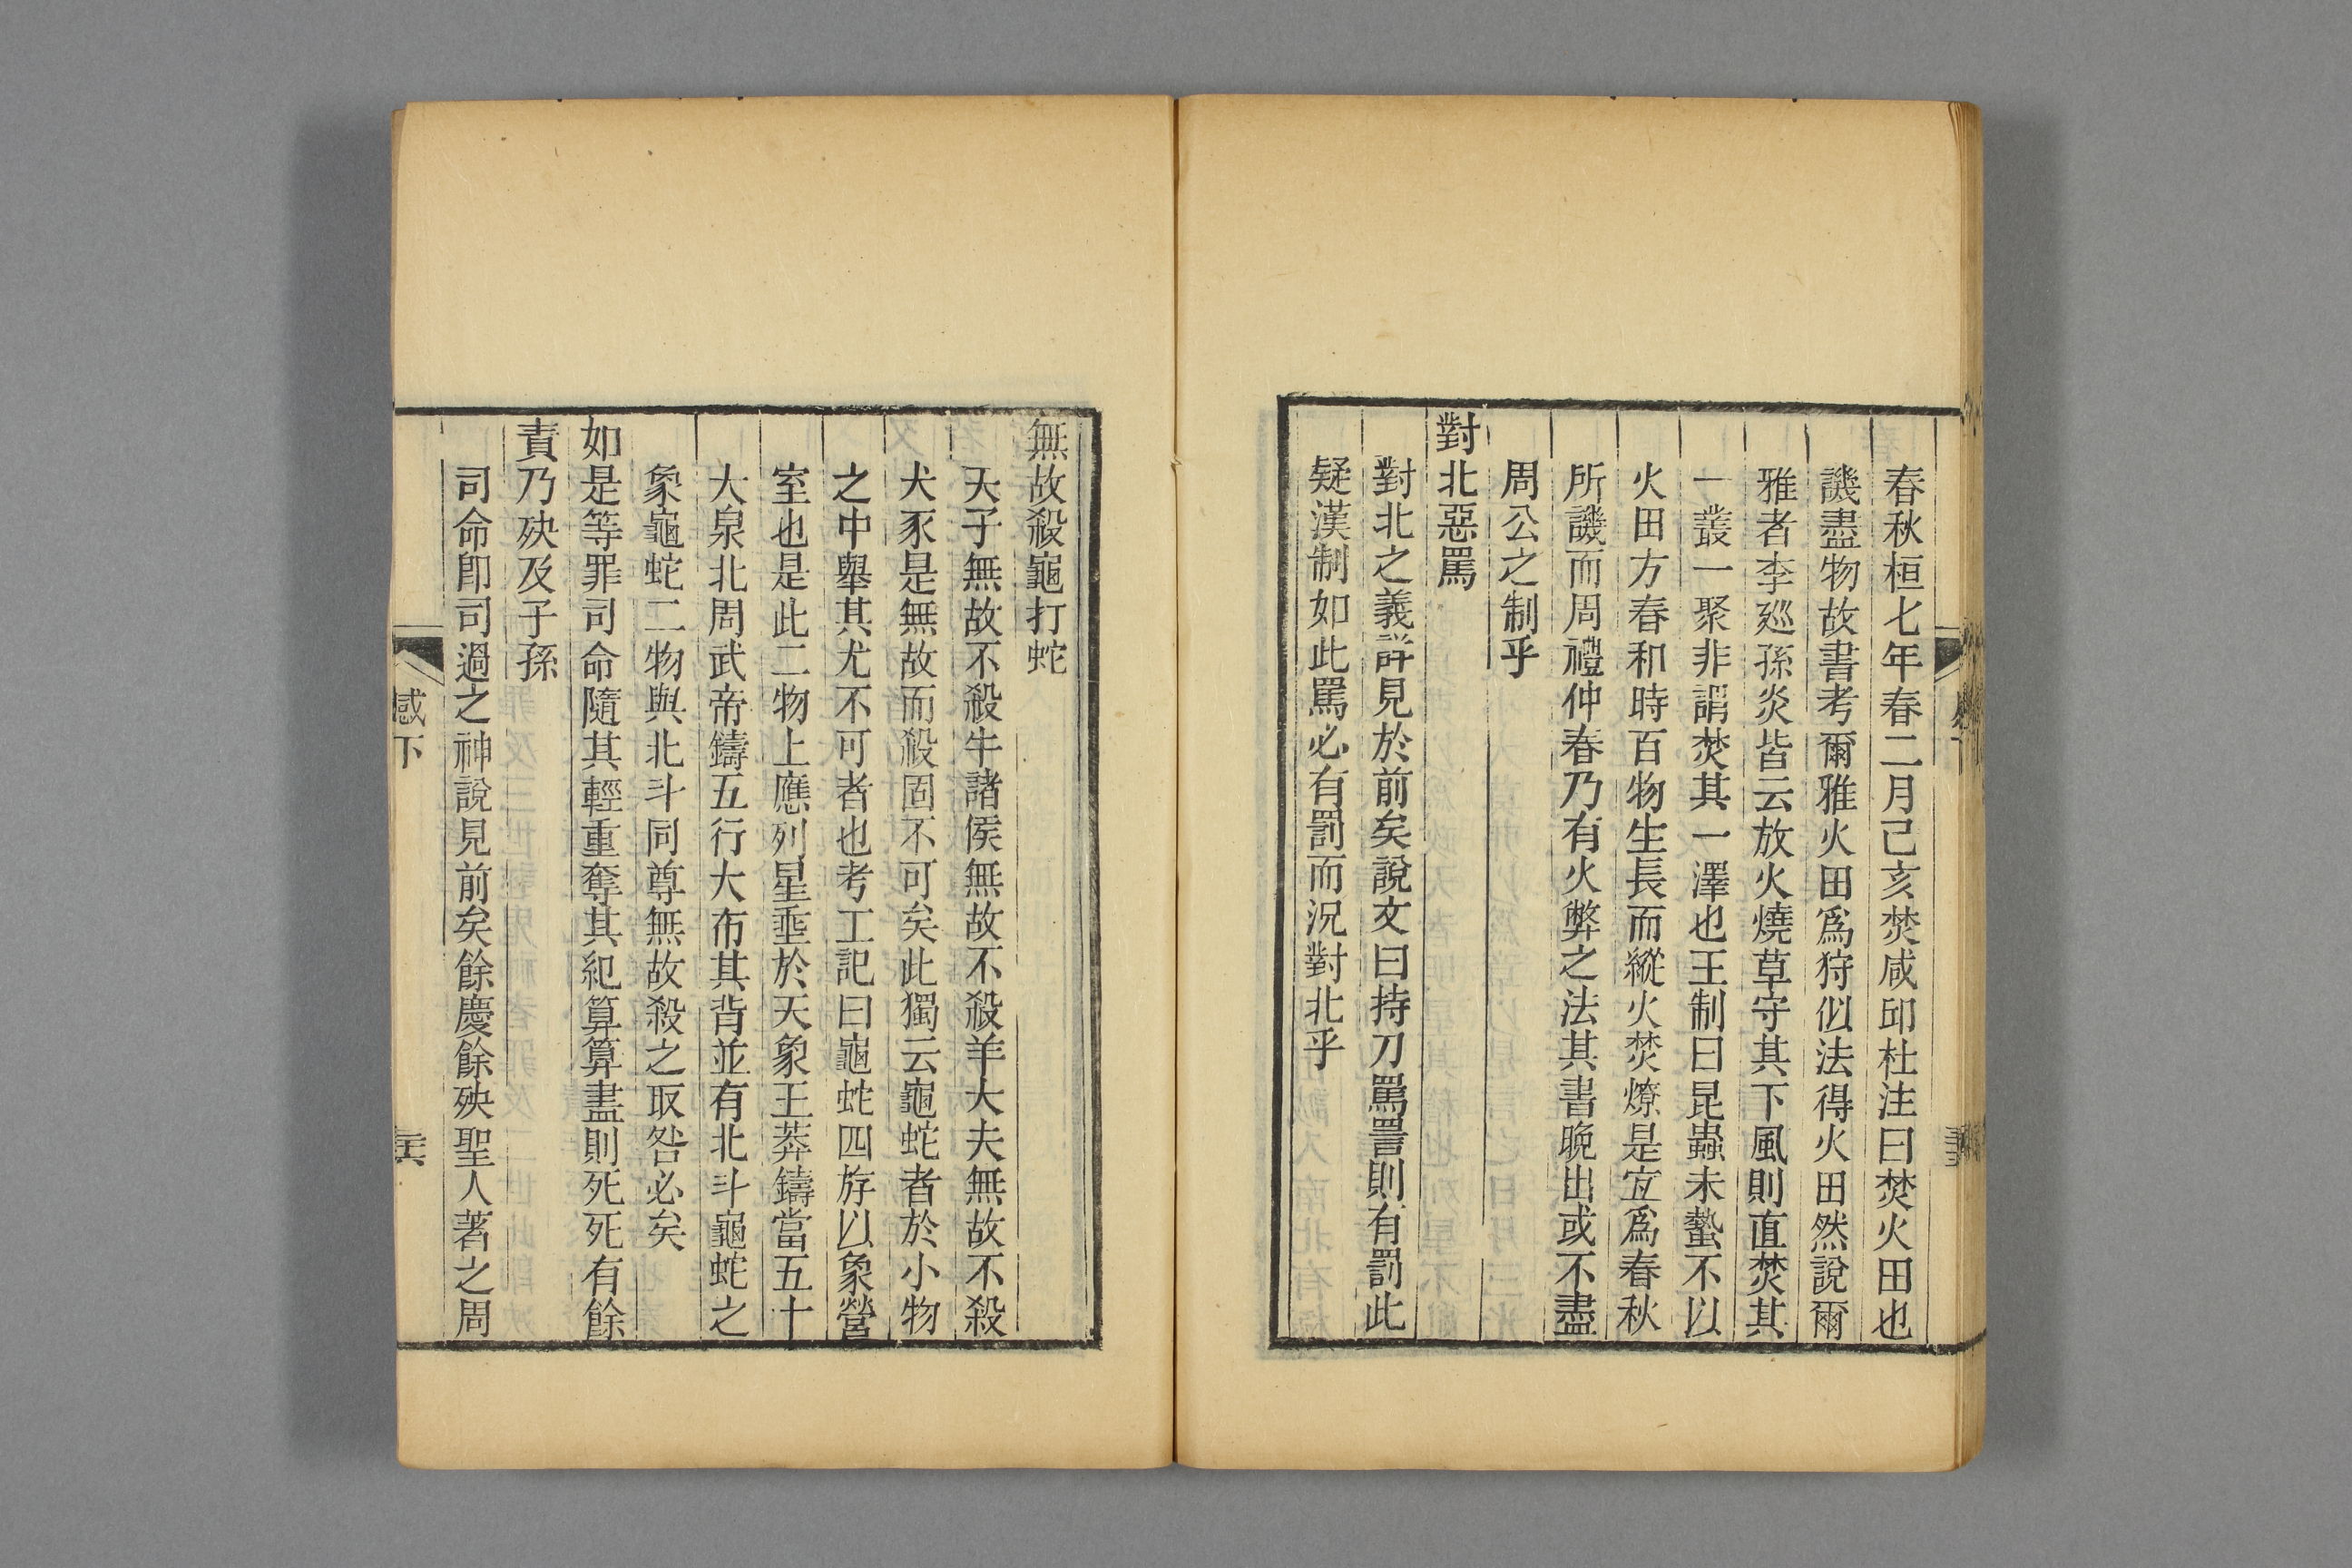 春秋桓七年春二月己亥焚咸邱杜注曰焚火田也
譏盡物故書考爾雅火田爲狩似法得火田然說爾
雅者李廵孫炎皆云放火燒草守其下風則直焚其
一叢一聚非謂焚其一澤也王制曰昆蟲未蟄不以
火田方春和時百物生長而縱火焚燎是宜爲春秋
所譏而周禮仲春乃有火弊之法其書晚出或不盡
周公之制乎
對北惡罵
對北之義詳見於前矣說文曰持刀罵詈則有罰此
疑漢制如此罵必有罰而況對北乎
無故殺龜打蛇
天子無故不殺牛諸侯無故不殺羊大夫無故不殺
犬豕是無故而殺固不可矣此獨云龜蛇者於小物
之中舉其尤不可者也考工記曰龜蛇四斿以象營
室也是此二物上應列星垂於天象王莽鑄當五十
大泉北周武帝鑄五行大布其背並有北斗龜蛇之
象龜蛇二物與北斗同尊無故殺之取咎必矣
如是等罪司命隨其輕重奪其紀算算盡則死死有餘
責乃殃及子孫
司命卽司過之神說見前矣餘慶餘殃聖人著之周
感下